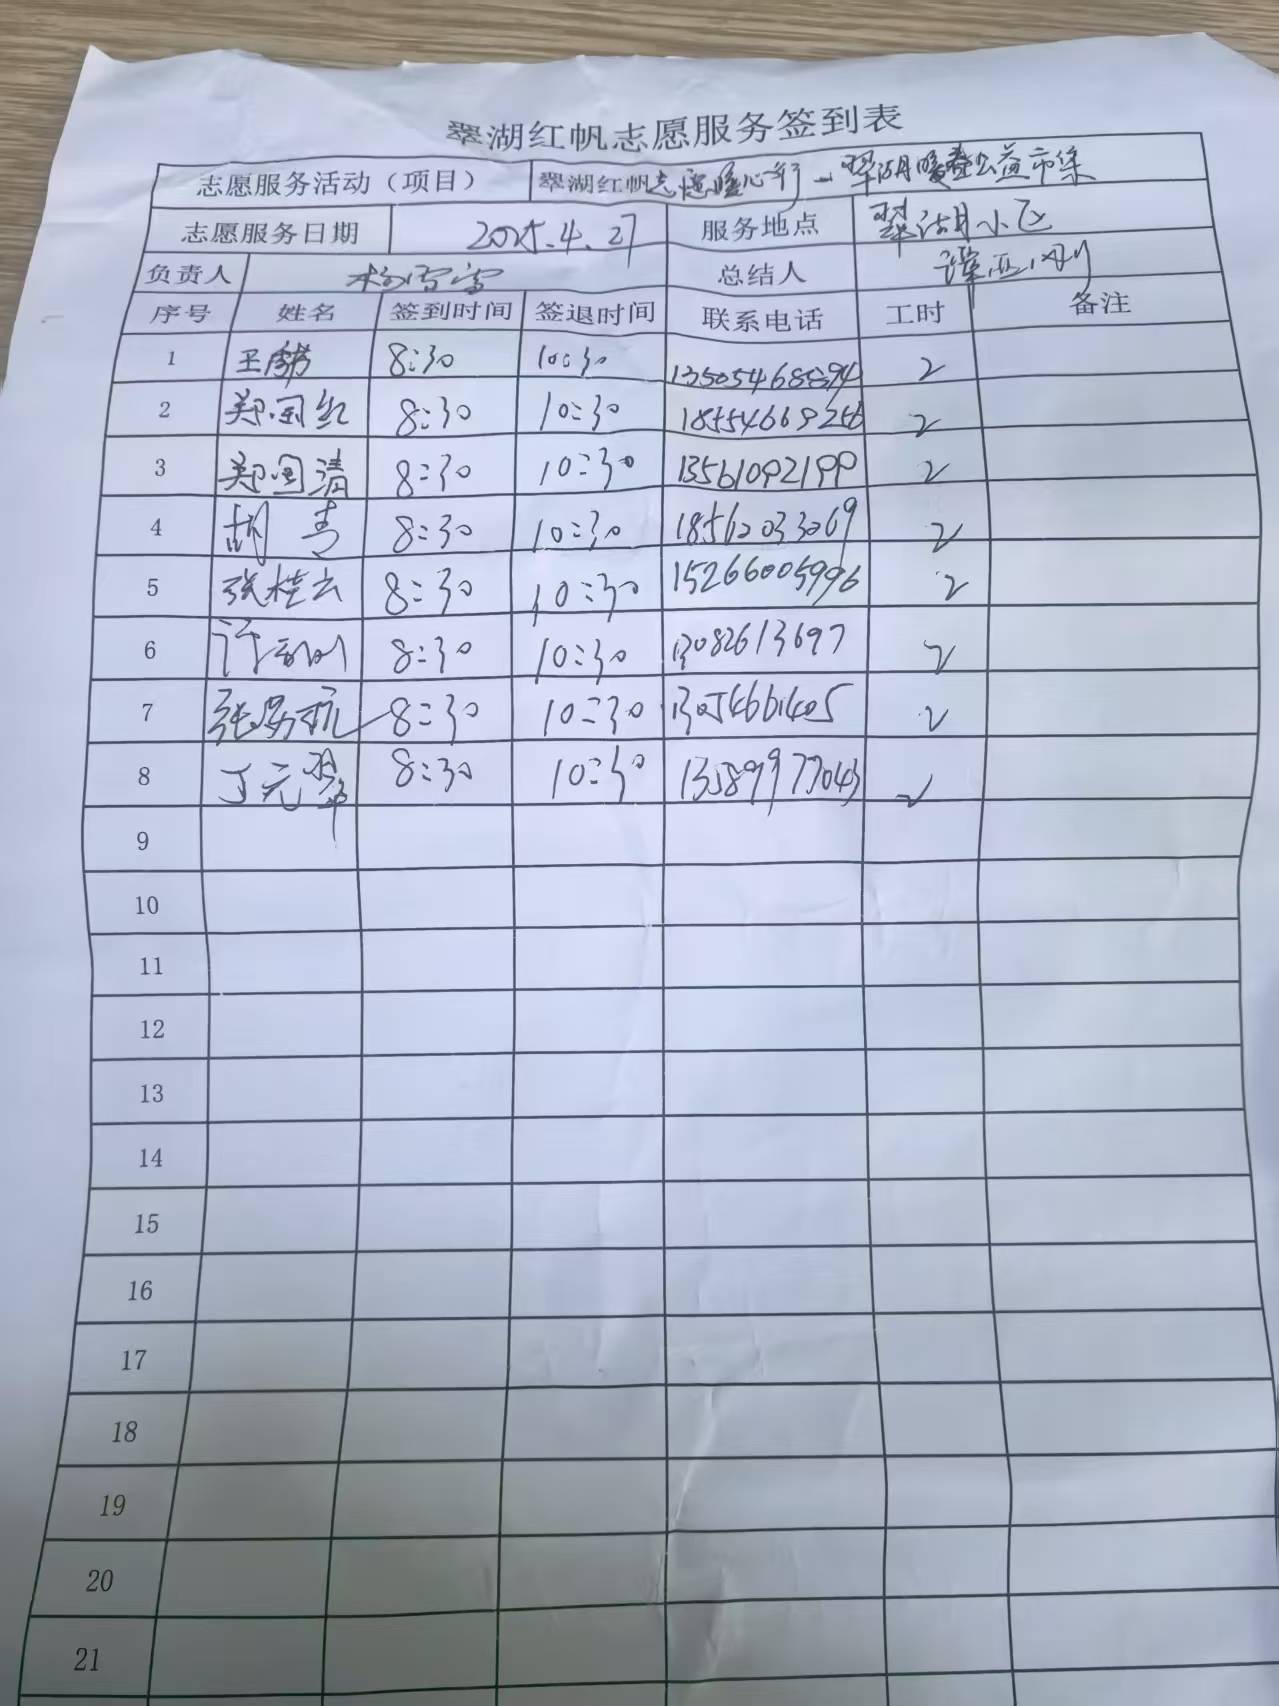 翠湖红帆志愿服务签到表
志愿服务活动（项目） 翠湖红帆志愿暖心行—翠湖暖春公益市集
志愿服务日期 2025.4.27 服务地点 翠湖小区
负责人 杨雪雪 总结人 谭亚刚
序号 姓名 签到时间 签退时间 联系电话 工时 备注
1 王 8:30 10:30 13505468894 2
2 郑国红 8:30 10:30 18554669256 2
3 郑国清 8:30 10:30 13561092199 2
4 胡青 8:30 10:30 18562033069 2
5 张桂云 8:30 10:30 15266005996 2
6 许 8:30 10:30 13082613697 2
7 张 8:30 10:30 13054661405 2
8 丁元翠 8:30 10:30 13589977043 2
9
10
11
12
13
14
15
16
17
18
19
20
21